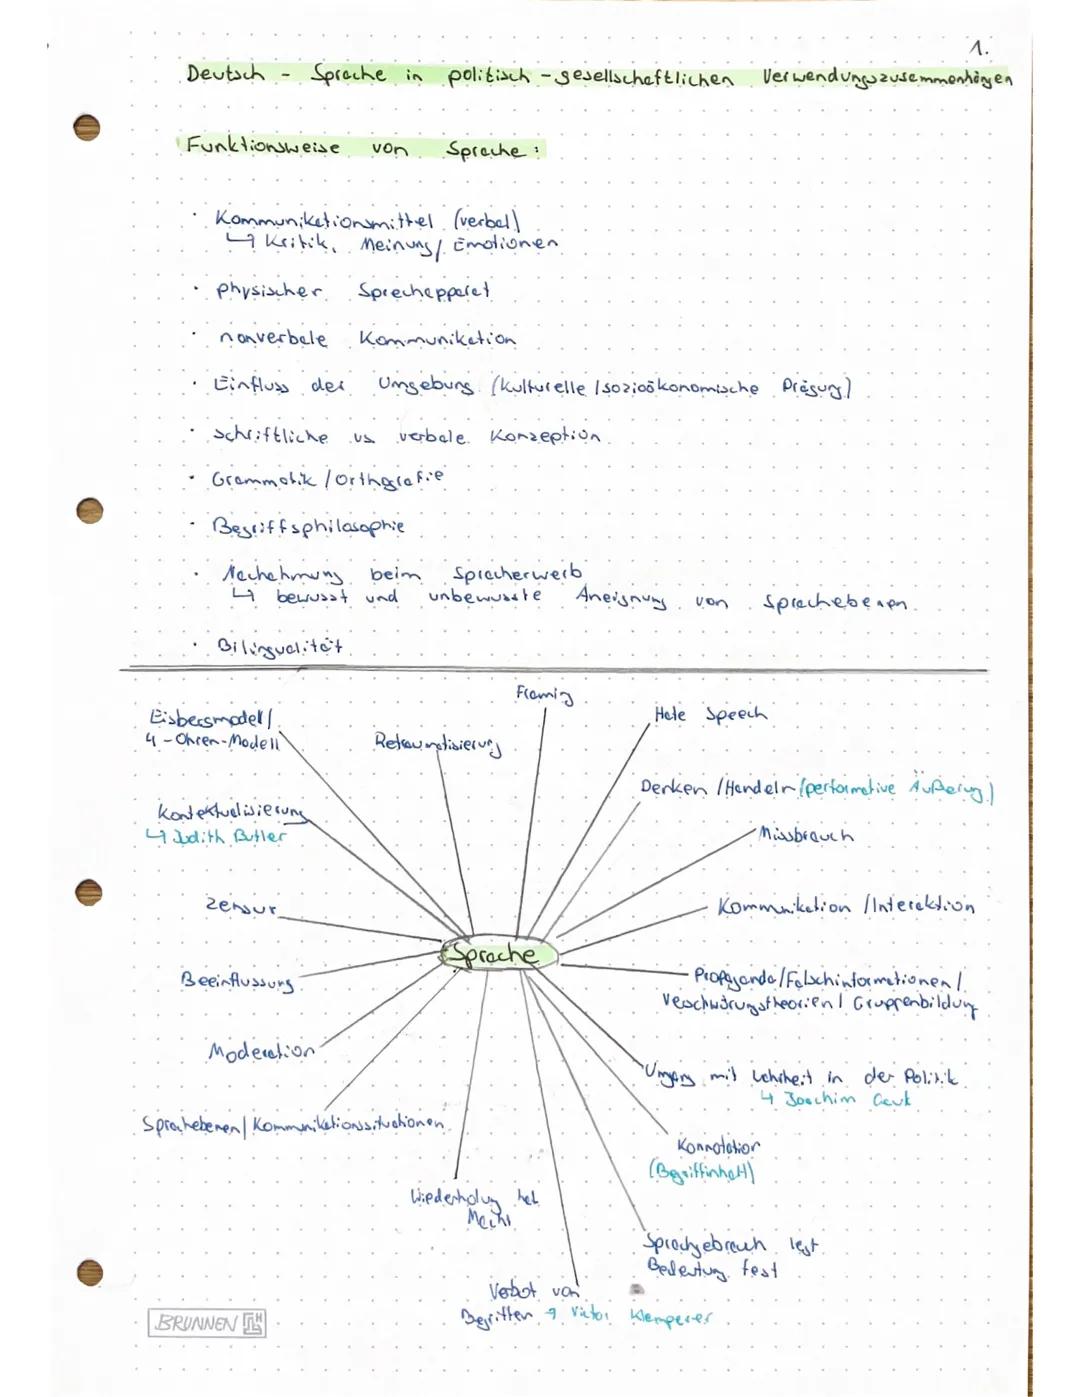 1.
Deutsch - Sprache in politisch-gesellschaftlichen Verwendungszusammenhängen
Funktionsweise von Sprache:
· Kommunikationsmittel (verbal)
↳ Kritik, Meinung/ Emotionen
· physischer Sprechapparat
· nonverbale Kommunikation
· Einfluss der Umgebung (kulturelle/sozioökonomische Prägung)
· schriftliche vs verbale Konzeption
· Grammatik/Orthografie
· Begriffsphilosophie
· Nachahmung beim Spracherwerb
↳ bewusst und unbewusste Aneignung von Sprachebenen
· Bilingualität
Framing
Eisbergmodell/
4-Ohren-Modell
Retraumatisierung
Hate Speech
Denken/Handeln (performative Äußerung)
Kontextualisierung
↳ Judith Butler
Missbrauch
Zensur
Kommunikation/Interaktion
Sprache
Beeinflussung
Propaganda/Falschinformationen/
Verschwörungstheorien/ Gruppenbildung
Moderation
Umgang mit Wahrheit in der Politik
↳ Joachim Gauk
Sprachebenen/Kommunikationssituationen
Konnotation
(Begriffinhalt)
Wiederholung hat
Macht
Sprachgebrauch legt
Bedeutung fest
Verbot von
Begriffen → Victor Klemperer
BRUNNEN